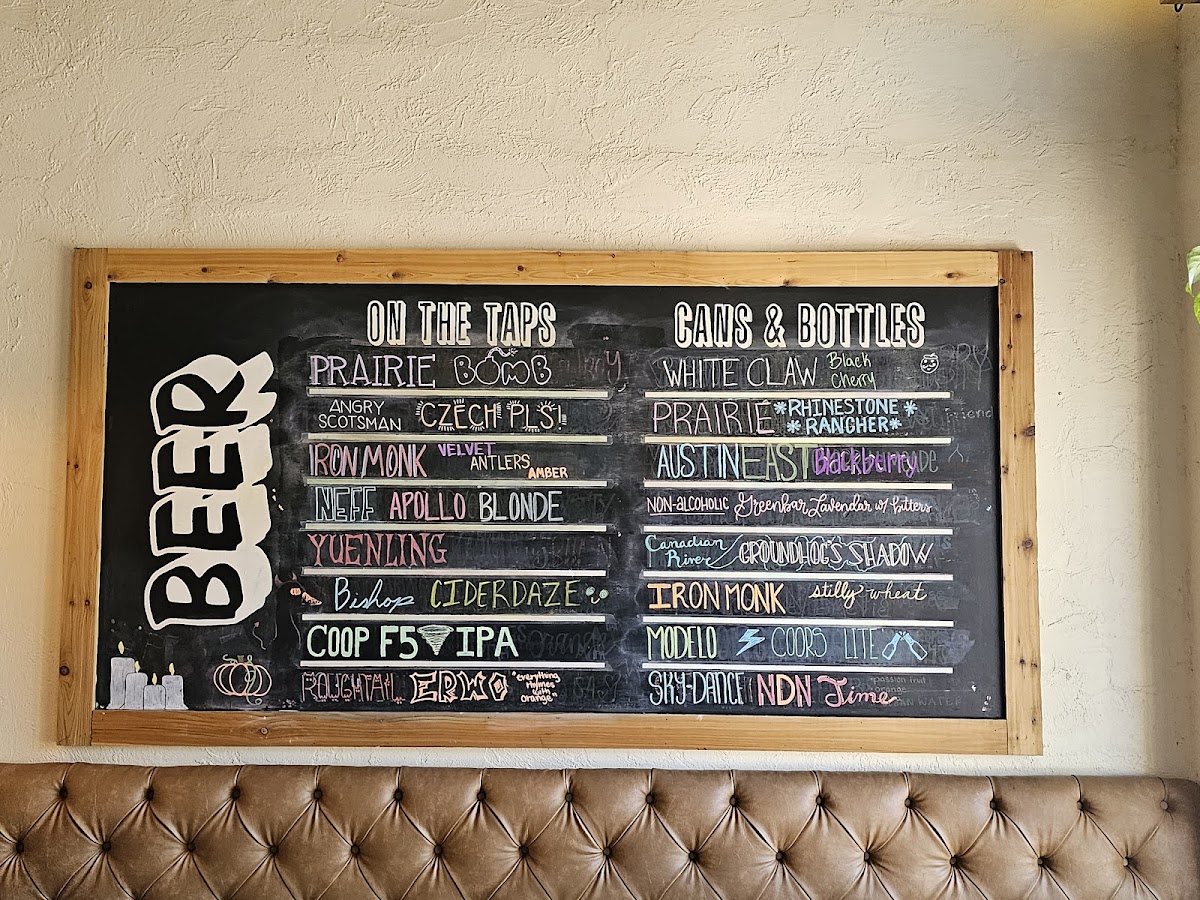 BEER
ON THE TAPS
PRAIRIE BOMB
ANGRY SCOTSMAN CZECH PLS!
IRON MONK VELVET ANTLERS AMBER
NEFF APOLLO BLONDE
YUENLING
Bishop CIDERDAZE
COOP F5 IPA
ROUGHTAIL ERWO "everything rhymes with orange"
CANS & BOTTLES
WHITE CLAW Black Cherry
PRAIRIE *RHINESTONE* *RANCHER*
AUSTIN EAST Blackberry
NON-ALCOHOLIC Greenbar Lavendar w/ bitters
Canadian River GROUNDHOG'S SHADOW
IRON MONK stilly wheat
MODELO COORS LITE
SKY-DANCE NDN Time
passion fruit
orange